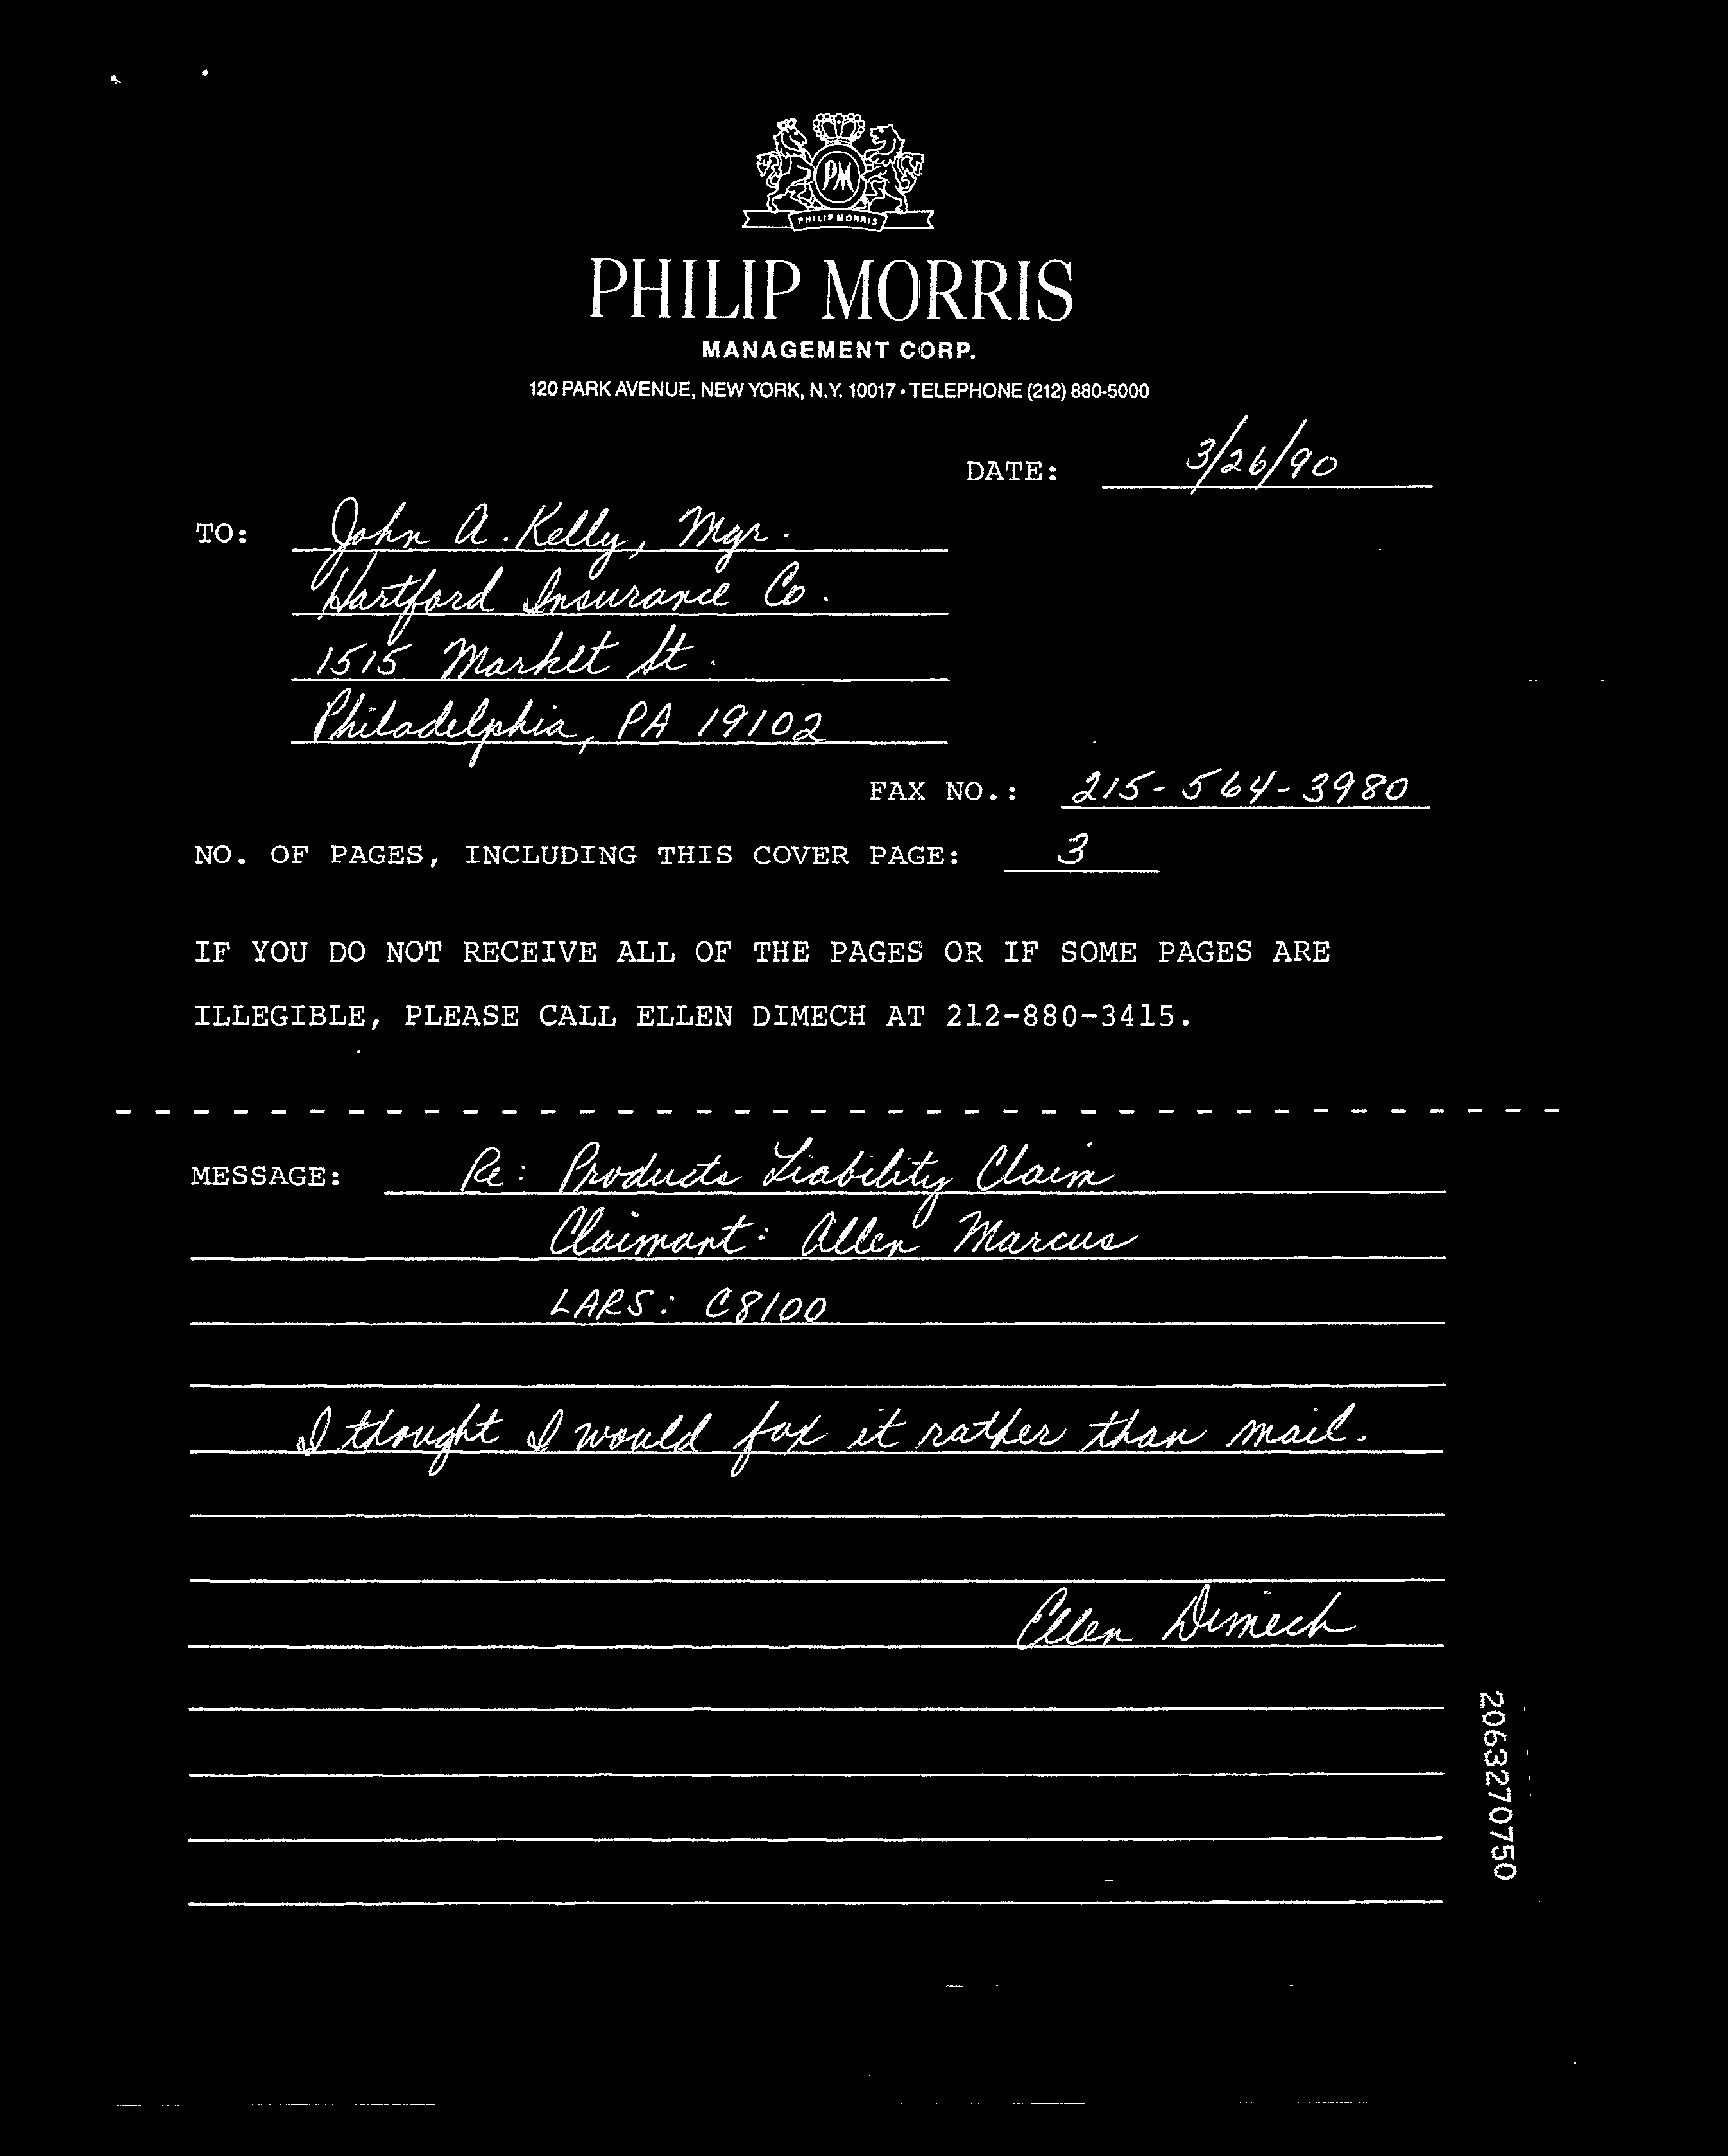 PM
PHILIP MORRIS
PHILIP MORRIS
MANAGEMENT CORP.
120 PARK AVENUE, NEW YORK, N.Y. 10017 • TELEPHONE (212) 880-5000
DATE: 3/26/90
TO: John A. Kelly, Mgr.
Hartford Insurance Co.
1515 Market St.
Philadelphia, PA 19102
FAX NO.: 215-564-3980
NO. OF PAGES, INCLUDING THIS COVER PAGE: 3
IF YOU DO NOT RECEIVE ALL OF THE PAGES OR IF SOME PAGES ARE
ILLEGIBLE, PLEASE CALL ELLEN DIMECH AT 212-880-3415.
MESSAGE: Re: Products Liability Claim
Claimant: Allen Marcus
LARS: C8100
I thought I would fax it rather than mail.
Ellen Dimech
2063270750